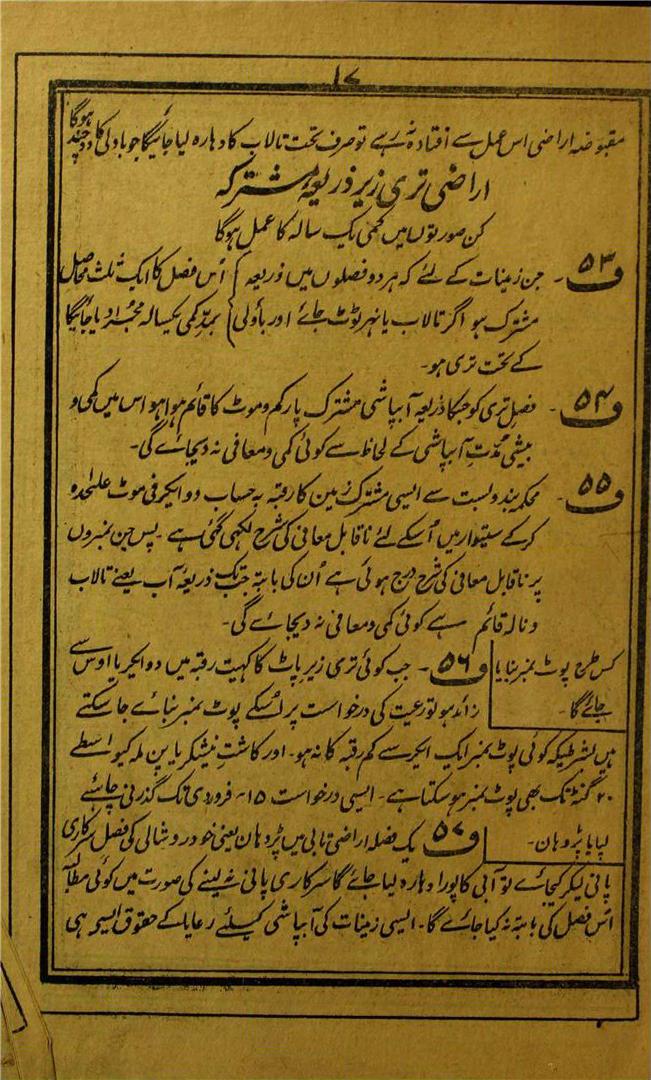 ۱۷
مقبوضہ اراضی اس عمل سے افتادہ نہ رہے تو صرف تحت تالاب کا دہارہ لیا جائیگا جو باولی کا دوچند ہوگا
اراضی تری زیر ذریعہ مشترکہ
کن صورتوں میں کمی یک سالہ کا عمل ہوگا
ف۵۳۔ جن زمینات کے لئے کہ ہر دو فصلوں میں ذریعہ } اُس فصل کا ایک ثلث محاصل
مشترک ہو اگر تالاب یا نہر ٹوٹ جائے اور باؤلی } بمدِ کمی یکسالہ مجرا دیا جائیگا
کے تحت تری ہو۔
ف۵۴۔ فصل تری کو جسکا ذریعہ آبپاشی مشترک پارکم و موٹ کا قائم ہوا ہو اس میں کمی و
بیشی مُدّتِ آبپاشی کے لحاظ سے کوئی کمی و معافی نہ دیجائے گی۔
ف۵۵۔ محکمہ بندوبست سے ایسی مشترک زمین کا رقبہ بہ حساب دو ایکر فی موٹ علٰحدہ
کرکے سیتوار میں اُسکے لئے ناقابل معافی کی شرح لکھی گئی ہے۔ پس جن نمبروں
پر ناقابل معافی کی شرح درج ہوئی ہے اُن کی بابتہ جب تک ذریعۂ آب یعنے تالاب
و نالہ قائم ہے کوئی کمی و معافی نہ دیجائے گی۔
کس طرح پوٹ نمبر بنایا ف۵۶۔ جب کوئی تری زیر پاٹ کا کہیت رقبہ میں دو ایکر یا اوس سے
جائے گا۔ زائد ہو تو رعیت کی درخواست پر اُسکے پوٹ نمبر بنائے جا سکتے
ہیں بشرطیکہ کوئی پوٹ نمبر ایک ایکر سے کم رقبہ کا نہ ہو۔ اور کاشتِ نیشکر یا پن ملہ کیواسطے
۲۰ گنٹہ تک بھی پوٹ نمبر ہو سکتا ہے۔ ایسی درخواست ۱۵۔ فروردی تک گذرنی چاہئے
لپایا پڑوہان۔ ف۵۷ یک فصلہ اراضی تابی میں پڑوہان یعنی خودرو شالی کی فصل سرکاری
پانی لیکر کیجائے تو آبی کا پورا دہارہ لیا جائے گا سرکاری پانی نہ لینے کی صورت میں کوئی مطالبہ
اُس فصل کی بابتہ نہ کیا جائے گا۔ ایسی زمینات کی آبپاشی کیلئے رعایا کے حقوق ایسے ہی